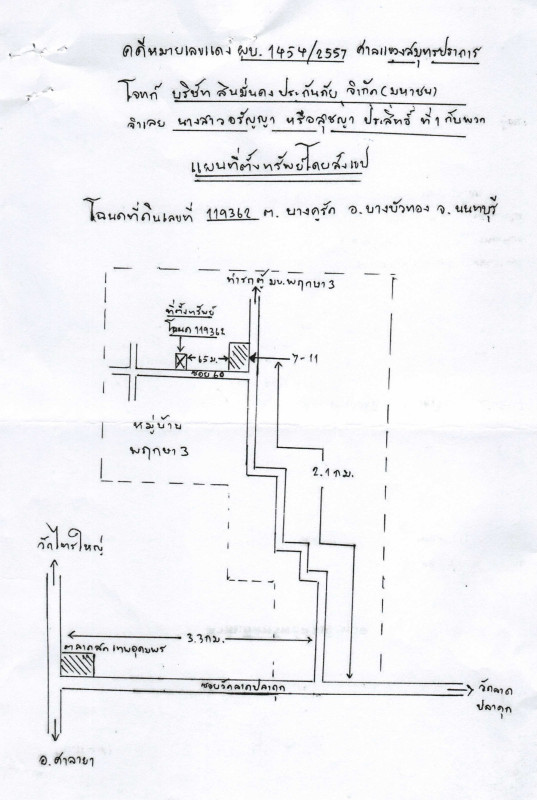 คดีหมายเลขแดง ผบ. 1454/2557 ศาลแขวงสมุทรปราการ
โจทก์ บริษัท สินมั่นคง ประกันภัย จำกัด (มหาชน)
จำเลย นางสาวอรัญญา หรือสุชญา ประสิทธิ์ ที่ 1 กับพวก
แผนที่ตั้งทรัพย์โดยสังเขป
โฉนดที่ดินเลขที่ 119362 ต. บางคูรัด อ. บางบัวทอง จ. นนทบุรี
ท่ารถตู้ มบ. พฤกษา 3
ที่ตั้งทรัพย์
โฉนด 119362
65 ม.
7-11
ซอย 60
หมู่บ้าน
พฤกษา 3
2.1 กม.
วัดไทรใหญ่
3.3 กม.
ตลาดสด เทพอุดมพร
ซอยวัดลาดปลาดุก
วัดลาด
ปลาดุก
อ. ศาลายา